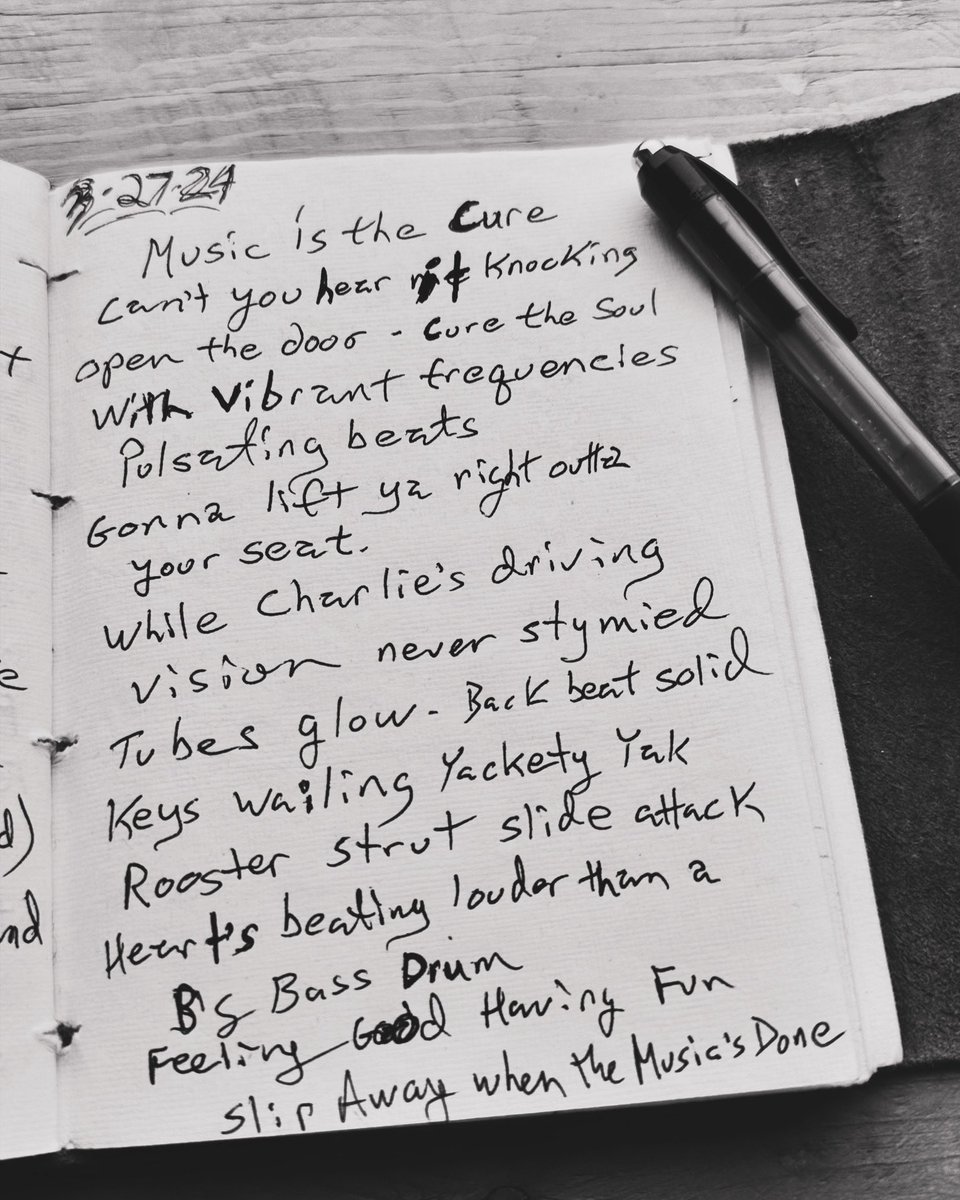 3-27-24
Music is the Cure
Can't you hear it Knocking
open the door - Cure the Soul
With Vibrant frequencies
Pulsating beats
Gonna lift ya right outta
your seat.
While Charlie's driving
vision never stymied
Tubes glow - Back beat solid
Keys wailing Yackety Yak
Rooster strut slide attack
Heart's beating louder than a
Big Bass Drum
Feeling Good Having Fun
slip Away when the Music's Done
d)
nd